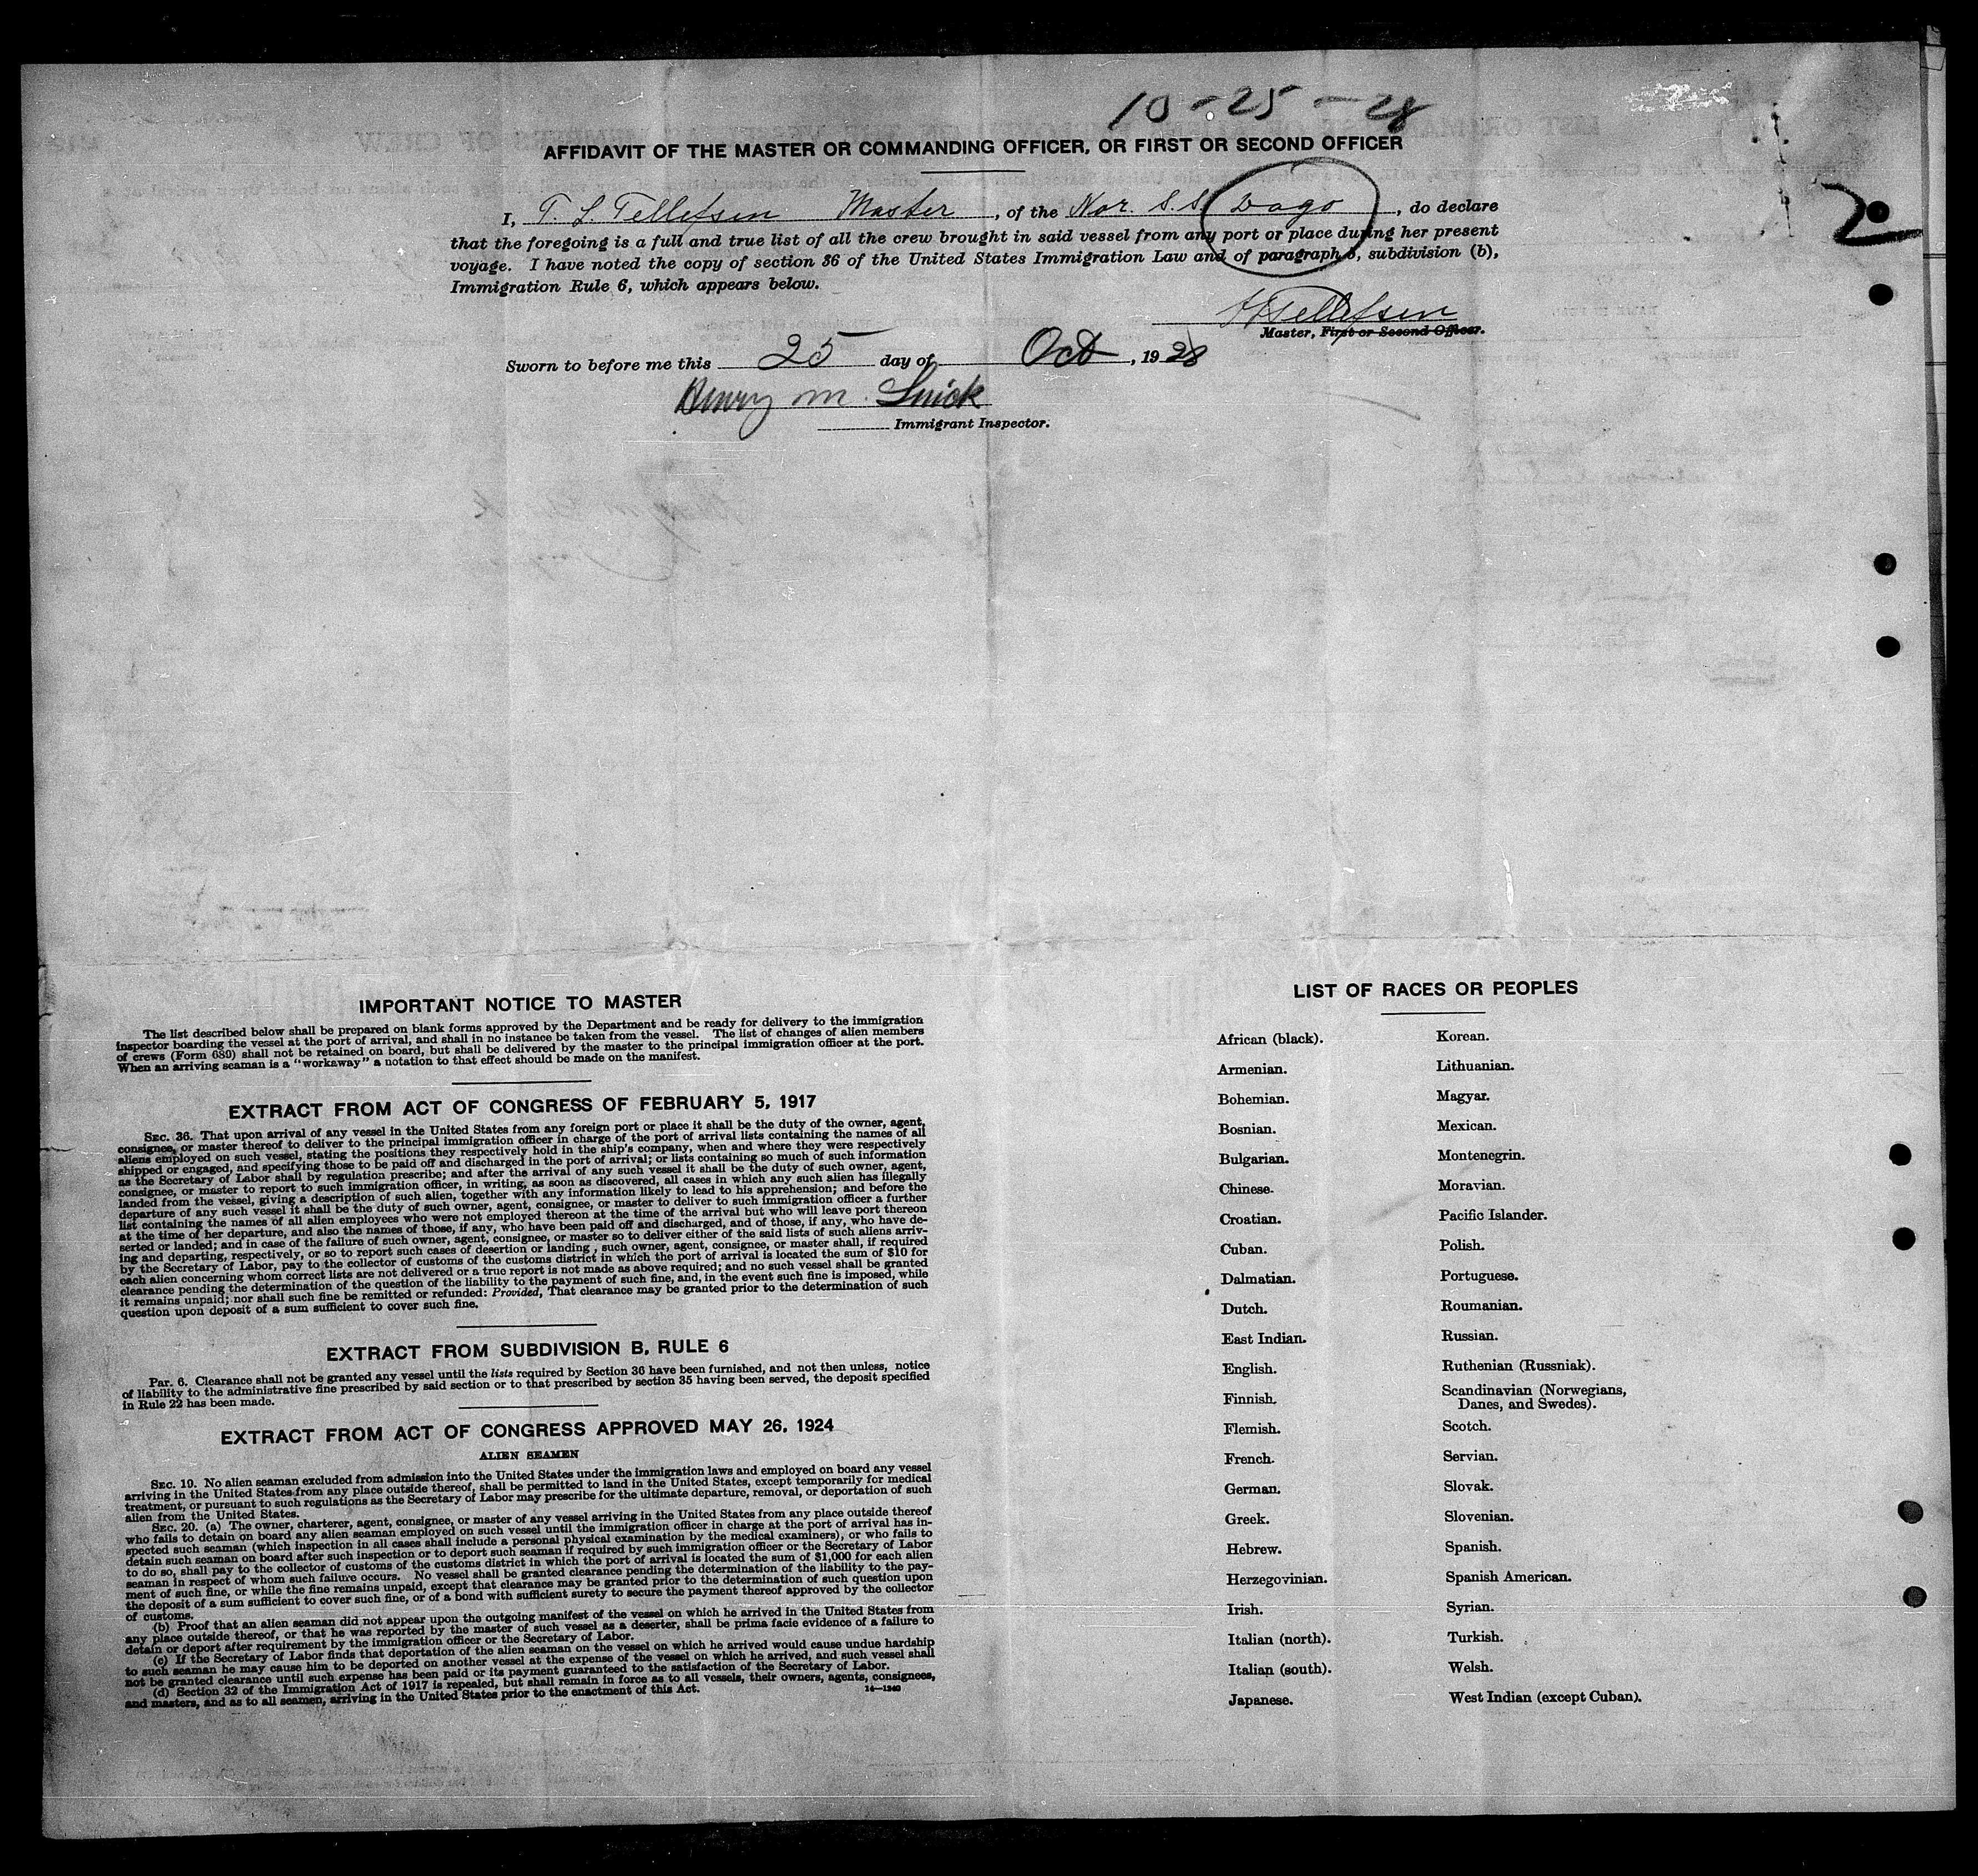 10-25-28
AFFIDAVIT OF THE MASTER OR COMMANDING OFFICER, OR FIRST OR SECOND OFFICER
2
I, T. S. Tellefsen Master, of the Nor. S.S. Dago, do declare
that the foregoing is a full and true list of all the crew brought in said vessel from any port or place during her present
voyage. I have noted the copy of section 36 of the United States Immigration Law and of paragraph 6, subdivision (b),
Immigration Rule 6, which appears below.
Tellefsen
Master, First or Second Officer.
Sworn to before me this 25 day of Oct, 1928
Henry M.
Immigrant Inspector.
IMPORTANT NOTICE TO MASTER
The list described below shall be prepared on blank forms approved by the Department and be ready for delivery to the immigration
inspector boarding the vessel at the port of arrival, and shall in no instance be taken from the vessel. The list of changes of alien members
of crews (Form 680) shall not be retained on board, but shall be delivered by the master to the principal immigration officer at the port.
When an arriving seaman is a "workaway" a notation to that effect should be made on the manifest.
EXTRACT FROM ACT OF CONGRESS OF FEBRUARY 5, 1917
SEC. 36. That upon arrival of any vessel in the United States from any foreign port or place it shall be the duty of the owner, agent,
consignee, or master thereof to deliver to the principal immigration officer in charge of the port of arrival lists containing the names of all
aliens employed on such vessel, stating the positions they respectively hold in the ship's company, when and where they were respectively
shipped or engaged, and specifying those to be paid off and discharged in the port of arrival; or lists containing so much of such information
as the Secretary of Labor shall by regulation prescribe; and after the arrival of any such vessel it shall be the duty of such owner, agent,
consignee, or master to report to such immigration officer, in writing, as soon as discovered, all cases in which any such alien has illegally
landed from the vessel, giving a description of such alien, together with any information likely to lead to his apprehension; and before the
departure of any such vessel it shall be the duty of such owner, agent, consignee, or master to deliver to such immigration officer a further
list containing the names of all alien employees who were not employed thereon at the time of the arrival but who will leave port thereon
at the time of her departure, and also the names of those, if any, who have been paid off and discharged, and of those, if any, who have de-
serted or landed; and in case of the failure of such owner, agent, consignee, or master so to deliver either of the said lists of such aliens arriv-
ing and departing, respectively, or so to report such cases of desertion or landing, such owner, agent, consignee, or master shall, if required
by the Secretary of Labor, pay to the collector of customs of the customs district in which the port of arrival is located the sum of $10 for
each alien concerning whom correct lists are not delivered or a true report is not made as above required; and no such vessel shall be granted
clearance pending the determination of the question of the liability to the payment of such fine, and, in the event such fine is imposed, while
it remains unpaid; nor shall such fine be remitted or refunded: Provided, That clearance may be granted prior to the determination of such
question upon deposit of a sum sufficient to cover such fine.
EXTRACT FROM SUBDIVISION B, RULE 6
PAR. 6. Clearance shall not be granted any vessel until the lists required by Section 36 have been furnished, and not then unless, notice
of liability to the administrative fine prescribed by said section or to that prescribed by section 35 having been served, the deposit specified
in Rule 22 has been made.
EXTRACT FROM ACT OF CONGRESS APPROVED MAY 26, 1924
ALIEN SEAMEN
SEC. 19. No alien seaman excluded from admission into the United States under the immigration laws and employed on board any vessel
arriving in the United States from any place outside thereof, shall be permitted to land in the United States, except temporarily for medical
treatment, or pursuant to such regulations as the Secretary of Labor may prescribe for the ultimate departure, removal, or deportation of such
alien from the United States.
SEC. 20. (a) The owner, charterer, agent, consignee, or master of any vessel arriving in the United States from any place outside thereof
who fails to detain on board any alien seaman employed on such vessel until the immigration officer in charge at the port of arrival has in-
spected such seaman (which inspection in all cases shall include a personal physical examination by the medical examiners), or who fails to
detain such seaman on board after such inspection or to deport such seaman if required by such immigration officer or the Secretary of Labor
to do so, shall pay to the collector of customs of the customs district in which the port of arrival is located the sum of $1,000 for each alien
seaman in respect of whom such failure occurs. No vessel shall be granted clearance pending the determination of the liability to the pay-
ment of such fine, or while the fine remains unpaid, except that clearance may be granted prior to the determination of such question upon
the deposit of a sum sufficient to cover such fine, or of a bond with sufficient surety to secure the payment thereof approved by the collector
of customs.
(b) Proof that an alien seaman did not appear upon the outgoing manifest of the vessel on which he arrived in the United States from
any place outside thereof, or that he was reported by the master of such vessel as a deserter, shall be prima facie evidence of a failure to
detain or deport after requirement by the immigration officer or the Secretary of Labor.
(c) If the Secretary of Labor finds that deportation of the alien seaman on the vessel on which he arrived would cause undue hardship
to such seaman he may cause him to be deported on another vessel at the expense of the vessel on which he arrived, and such vessel shall
not be granted clearance until such expense has been paid or its payment guaranteed to the satisfaction of the Secretary of Labor.
(d) Section 32 of the Immigration Act of 1917 is repealed, but shall remain in force as to all vessels, their owners, agents, consignees,
and masters, and as to all seamen, arriving in the United States prior to the enactment of this Act.
14—1240
LIST OF RACES OR PEOPLES
African (black).
Armenian.
Bohemian.
Bosnian.
Bulgarian.
Chinese.
Croatian.
Cuban.
Dalmatian.
Dutch.
East Indian.
English.
Finnish.
Flemish.
French.
German.
Greek.
Hebrew.
Herzegovinian.
Irish.
Italian (north).
Italian (south).
Japanese.
Korean.
Lithuanian.
Magyar.
Mexican.
Montenegrin.
Moravian.
Pacific Islander.
Polish.
Portuguese.
Roumanian.
Russian.
Ruthenian (Russniak).
Scandinavian (Norwegians,
Danes, and Swedes).
Scotch.
Servian.
Slovak.
Slovenian.
Spanish.
Spanish American.
Syrian.
Turkish.
Welsh.
West Indian (except Cuban).